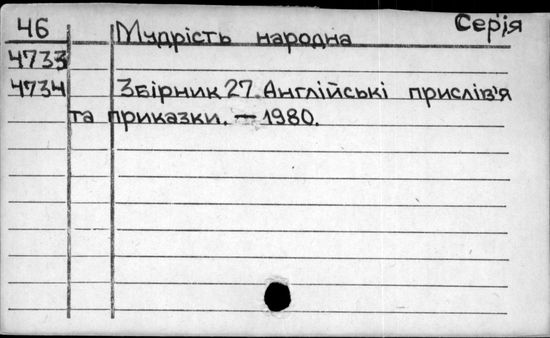 Серія
46 Мудрість народна
4733
4734 Збірник 27. Англійські прислів'я
та приказки. — 1980.